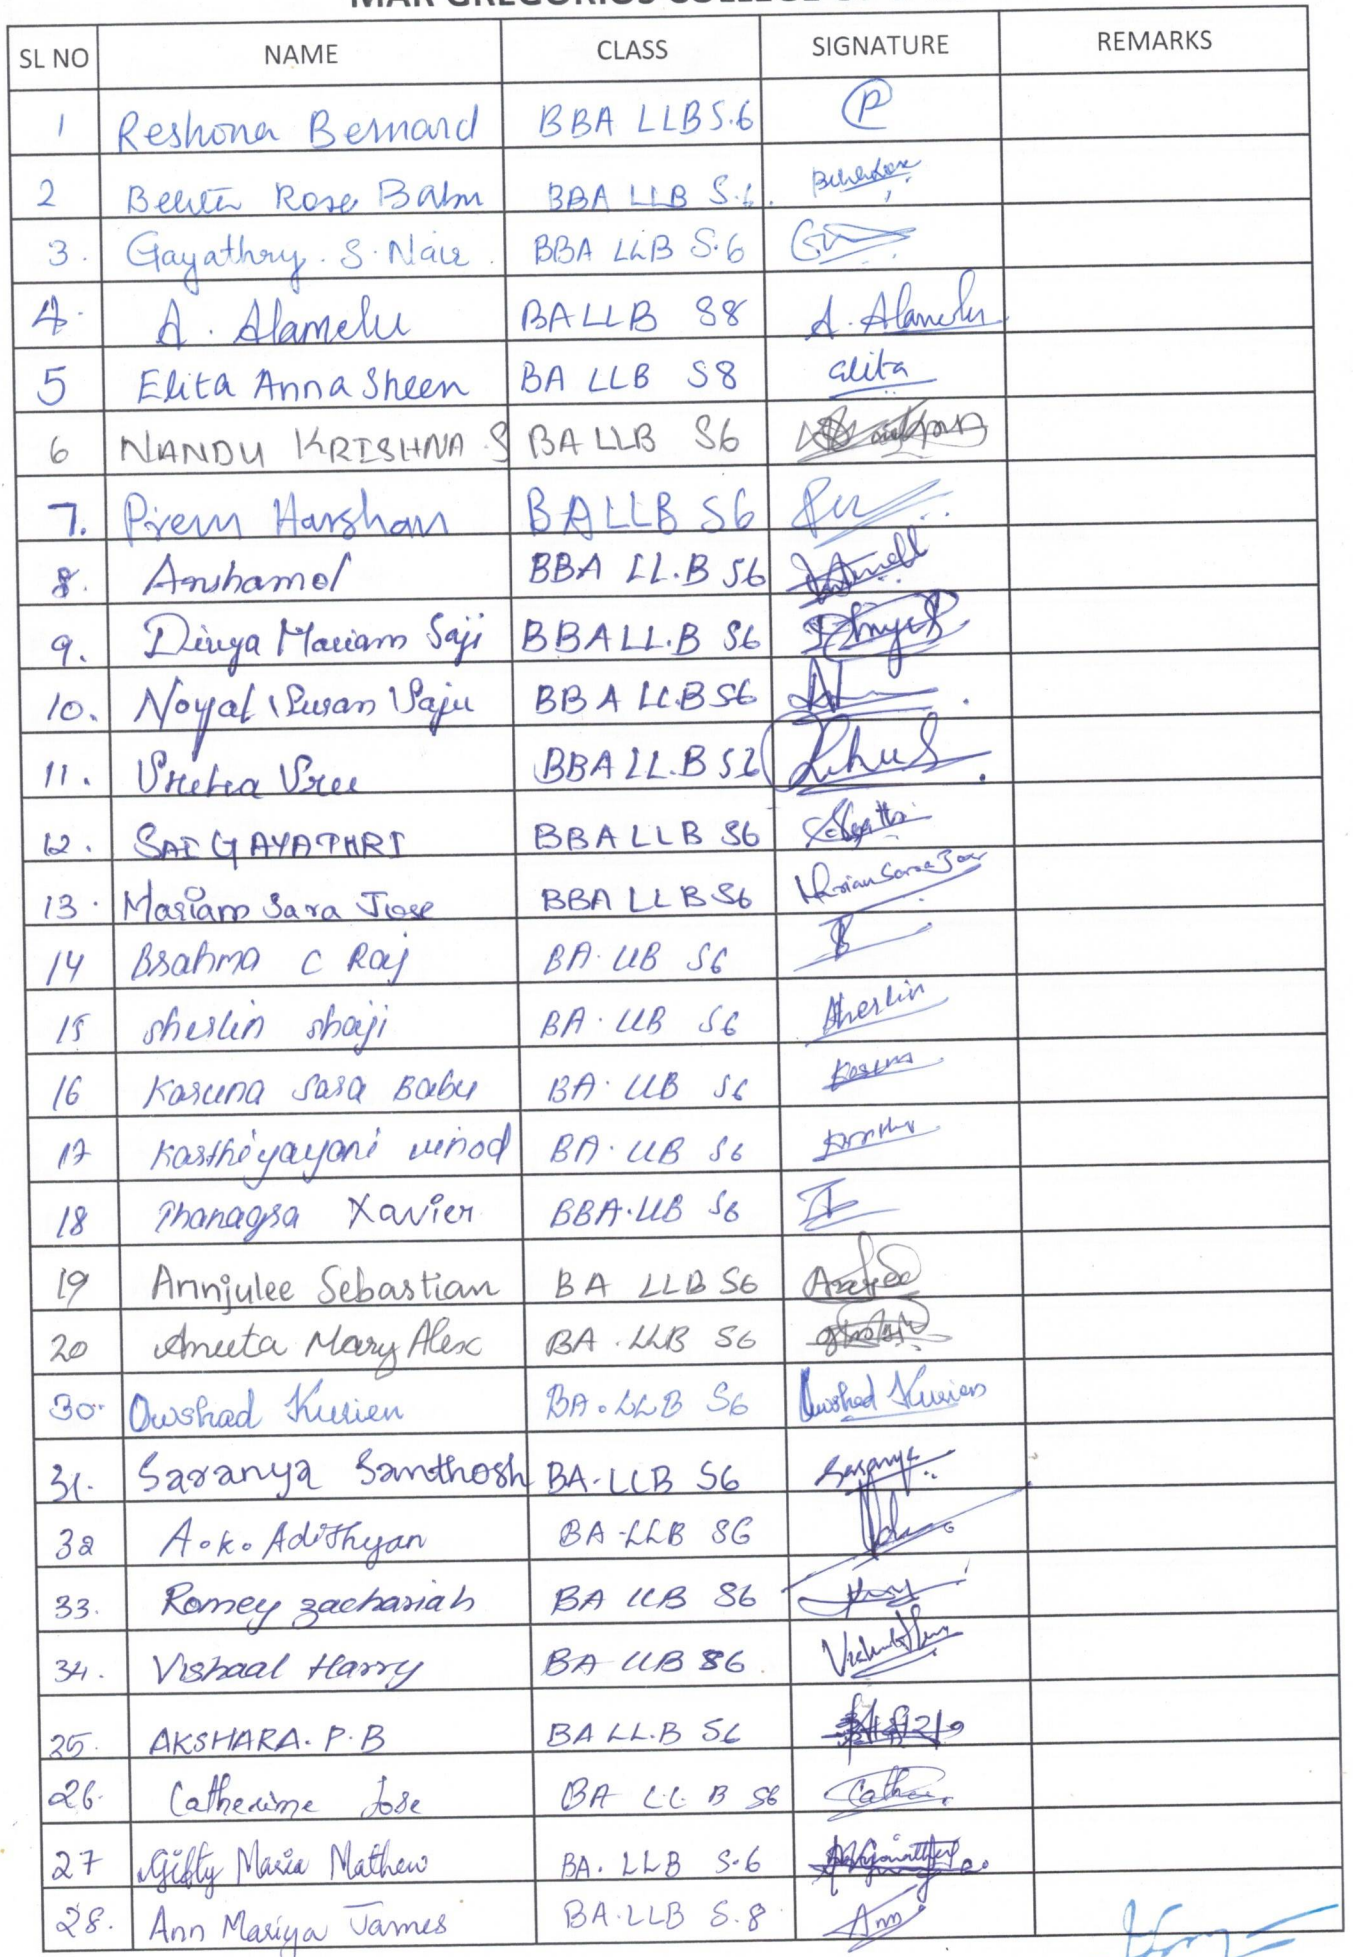 SL NO NAME CLASS SIGNATURE REMARKS
1 Reshona Bernard BBA LLB S.6
2 Rose Babu BBA LLB S.6.
3. Gayathry. S. Nair. BBA LLB S.6
4. A. Alamelu BA LLB S8 A. Alamelu
5 Elita Anna Sheen BA LLB S8 elita
6 NANDU KRISHNA S BA LLB S6
7. Prem Harshan BA LLB S6
8. Anshamol BBA LL.B S6
9. Divya Mariam Saji BBA LL.B S6
10. Noyal Susan Saju BBA LL.B S6
11. Sree BBA LL.B S6
12. SAI GAYATHRI BBA LLB S6
13. Mariam Sara Jose BBA LLB S6 Mariam Sara Jose
14 Brahma C Raj BA. LLB S6
15 Sherlin Shaji BA. LLB S6 Sherlin
16 Karuna Sara Babu BA. LLB S6 Karuna
17 Karthiyayani Vinod BA. LLB S6
18 Xavier BBA. LLB S6
19 Annjulee Sebastian BA LLB S6
20 Aneeta Mary Alex BA. LLB S6
30. Owshad Kurien BA. LLB S6 Owshad Kurien
31. Saranya Santhosh BA. LLB S6 Saranya
32 A.K. Adithyan BA-LLB S6
33. Romey Zachariah BA LLB S6
34. Vishaal Harry BA LLB S6.
25. AKSHARA. P. B BA LL.B S6
26. Catherine Jose BA LL B S6
27 Gifty Maria Mathew BA. LLB S.6
28. Ann Mariya James BA. LLB S.8 Ann